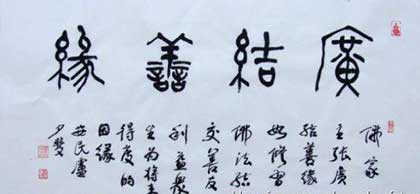 廣結善緣
佛家
主張廣
結善緣
如修習
佛法結
交善友
利益衆
生為將來
得度的
因緣